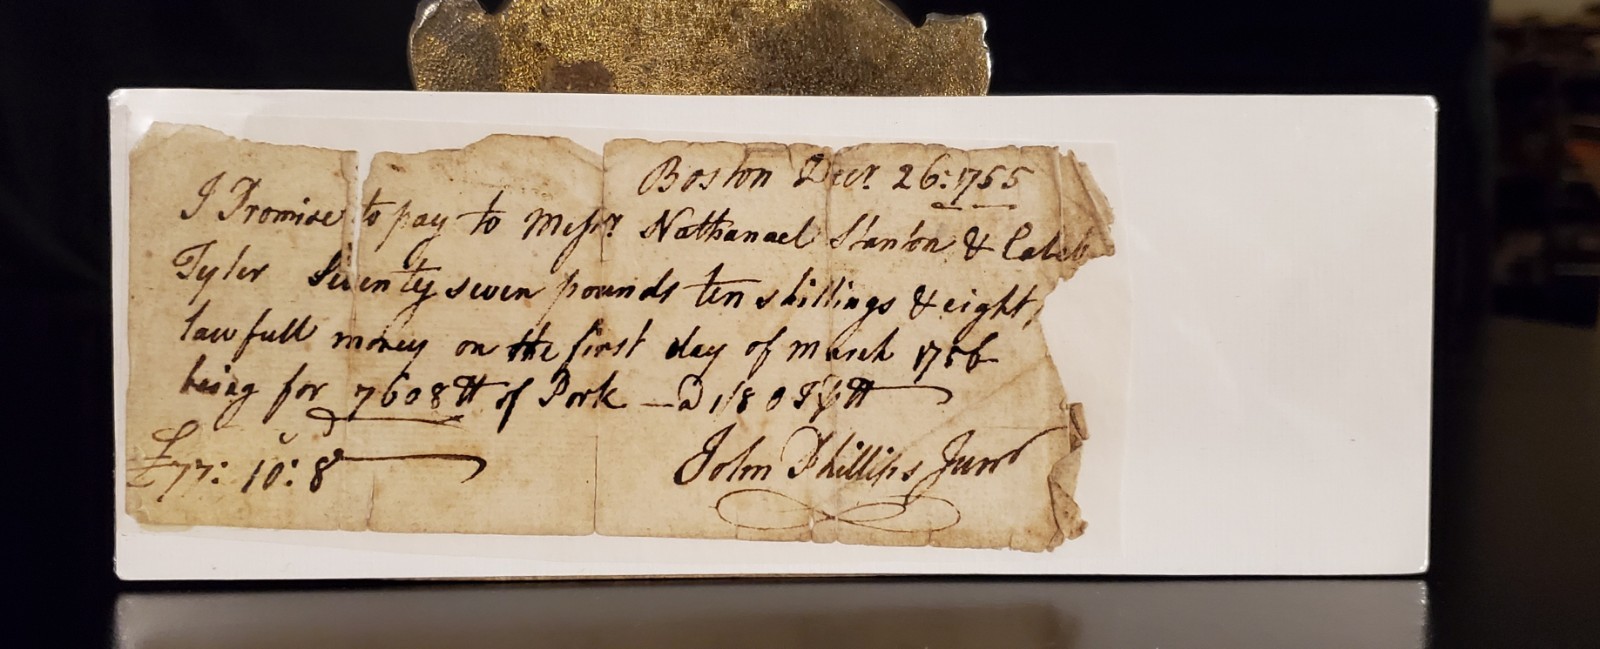 Boston Decr. 26: 1755
I Promise to pay to Messrs Nathanael Stanton & Caleb
Tyler Seventy seven pounds ten shillings & eight
lawfull money on the first day of March 1756
being for 7608 lb of Pork
£77: 10: 8
John Phillips Junr